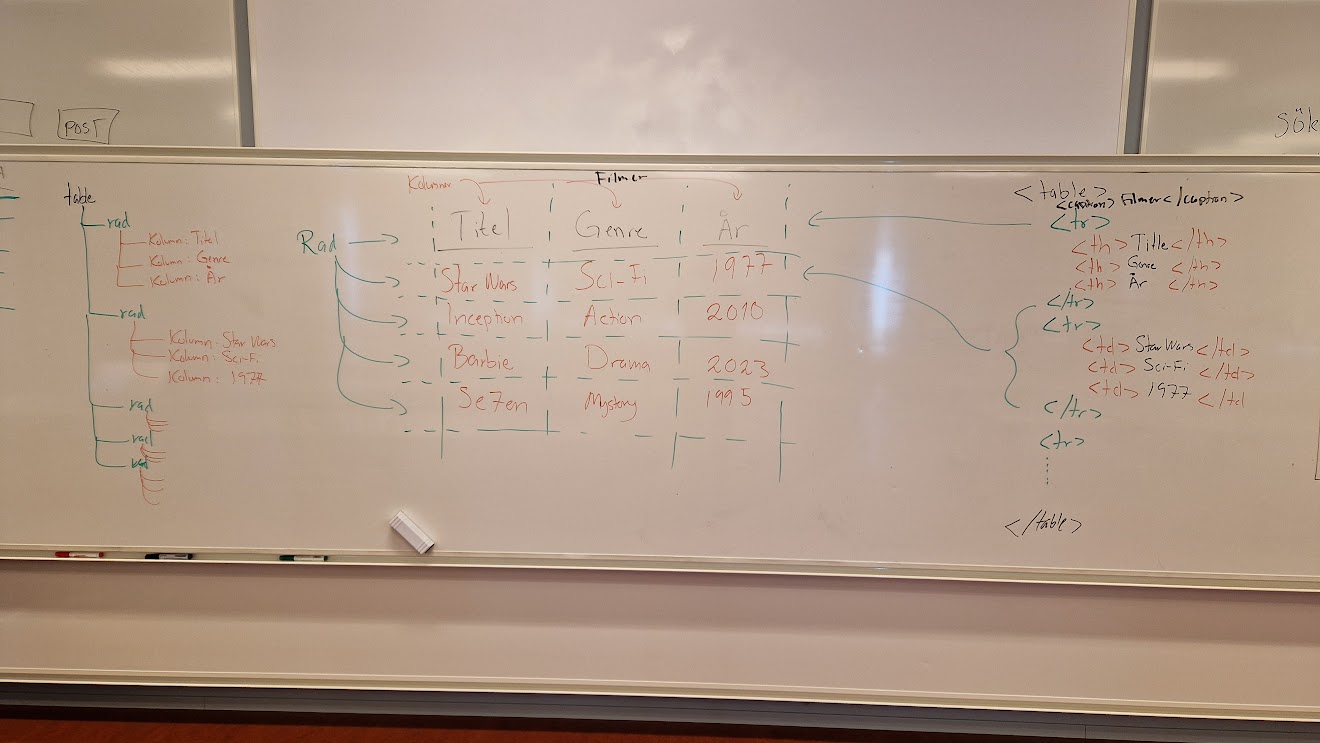 POST
SÖK
table
rad
Kolumn: Titel
Kolumn: Genre
Kolumn: År
rad
Kolumn: Star Wars
Kolumn: Sci-Fi
Kolumn: 1977
rad
rad
rad
Kolumner
Filmer
Rad
Titel Genre År
Star Wars Sci-Fi 1977
Inception Action 2010
Barbie Drama 2023
Se7en Mystery 1995
<table>
<caption> Filmer </caption>
<tr>
<th> Title </th>
<th> Genre </th>
<th> År </th>
</tr>
<tr>
<td> Star Wars </td>
<td> Sci-Fi </td>
<td> 1977 </td
</tr>
<tr>
</table>